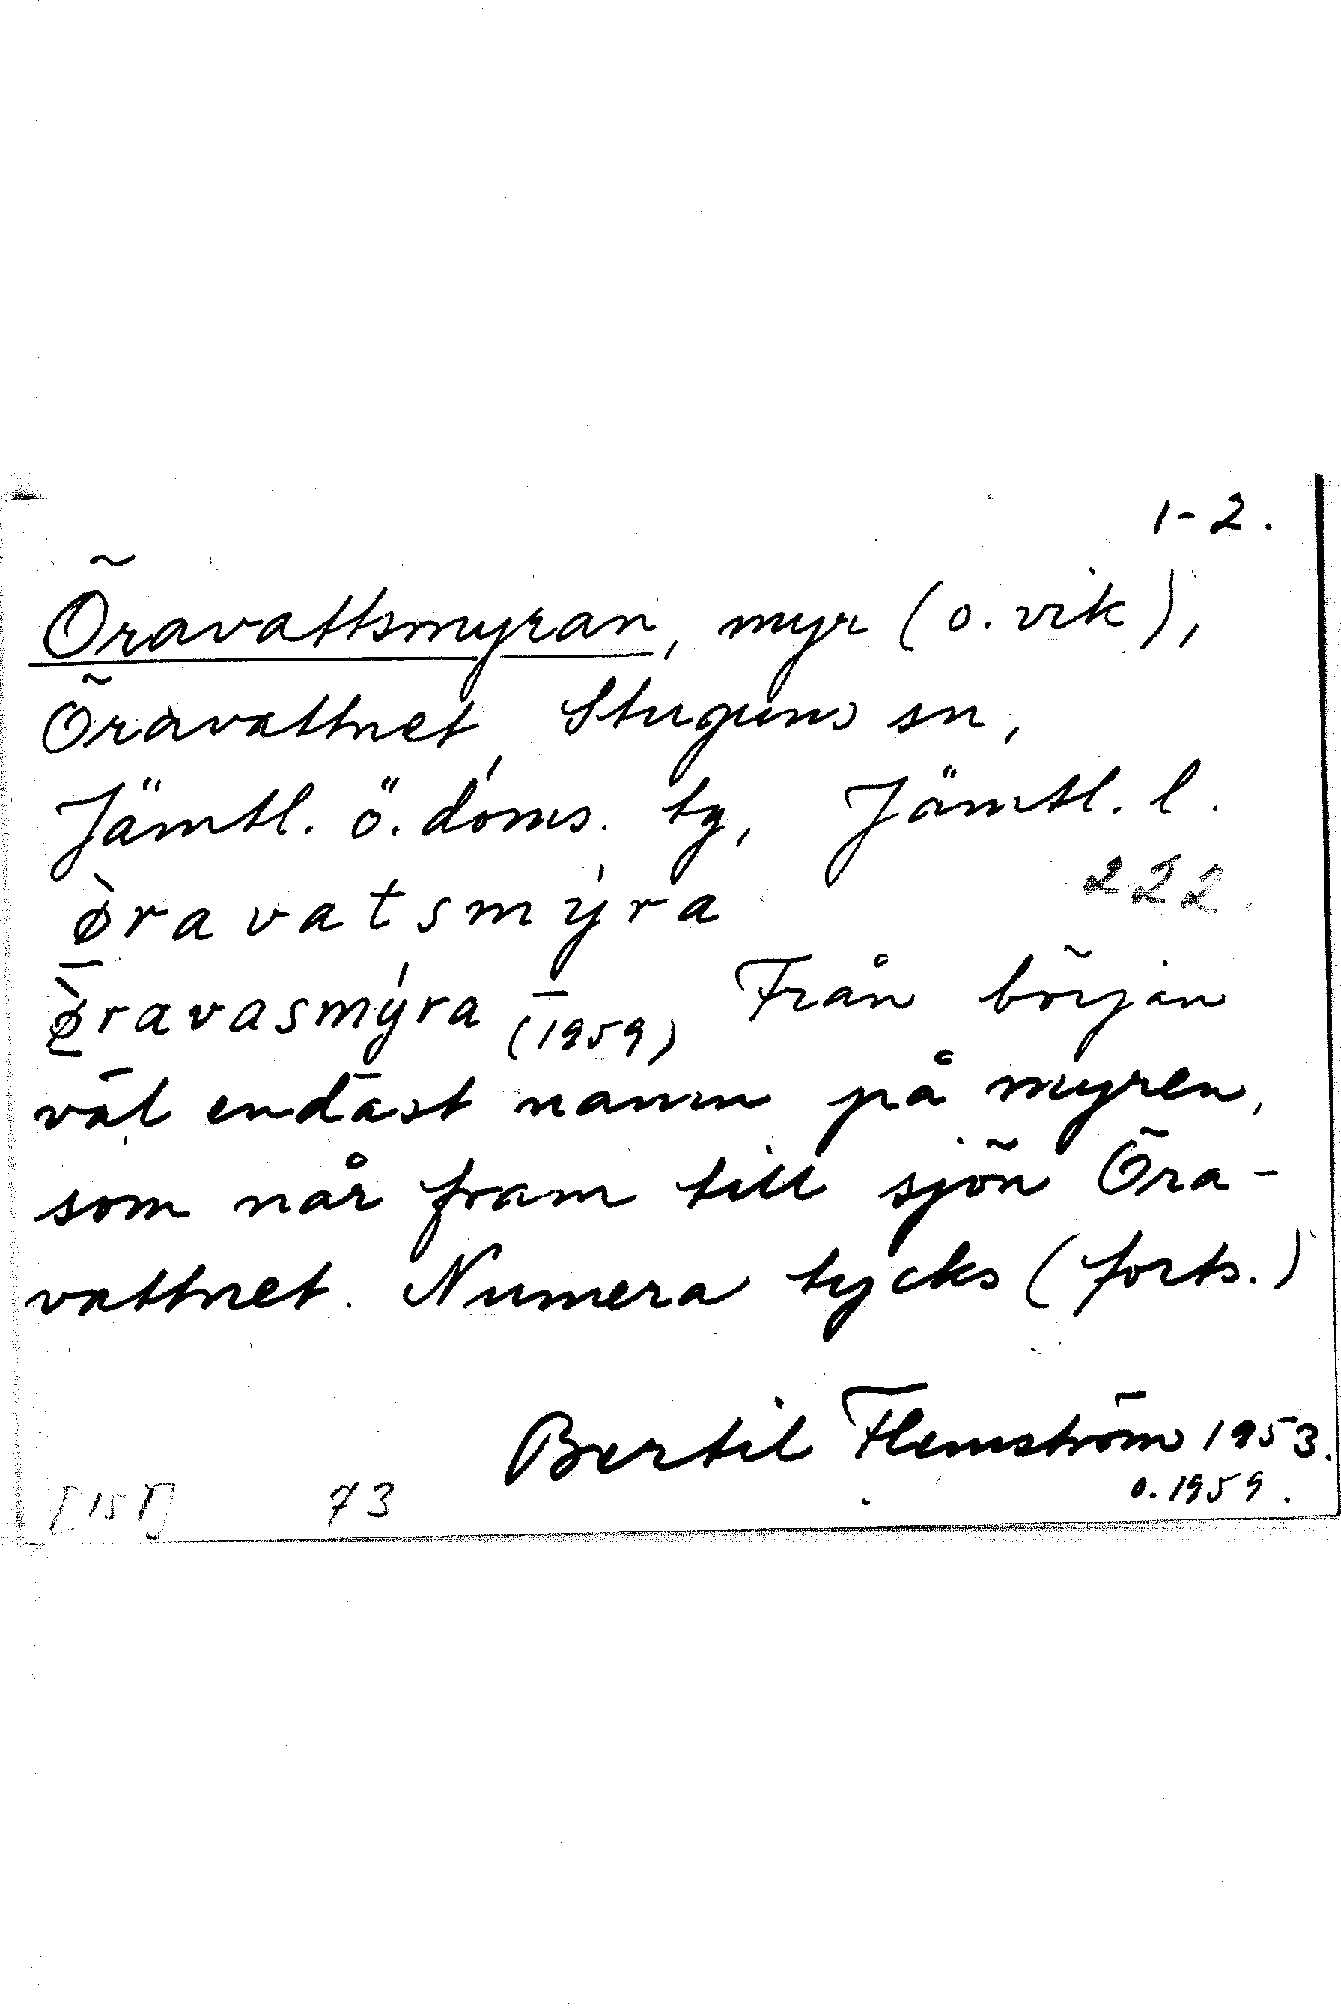 1-2.
Öravattsmyran, myr (o. vik),
Öravattnet, Stuguns sn,
Jämtl. ö. doms. tg, Jämtl. l.
ø̀ravatsmýra 222
ø̀ravasmýra (1959) Från början
väl endast namn på myren,
som når fram till sjön Öra-
vattnet. Numera tycks (forts.)
Bertil Flemström 1953.
o. 1959.
73